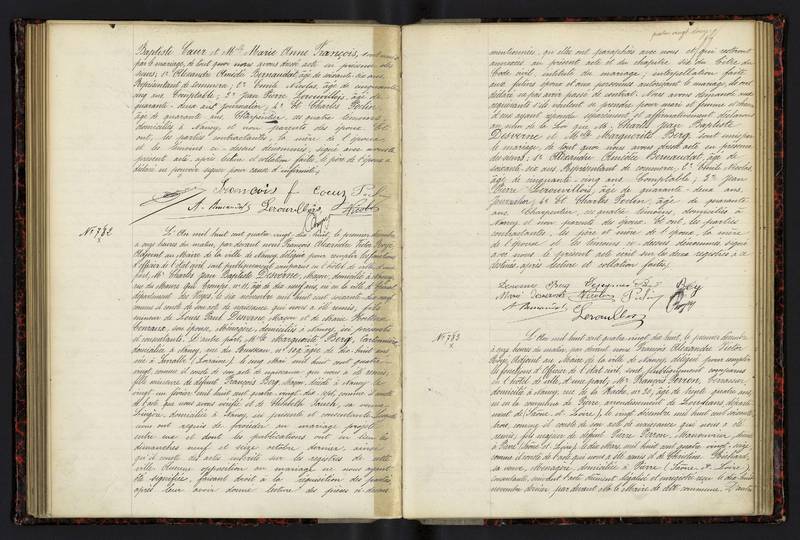 Baptiste Cœur et Mlle Marie Anne François, sont unis
par le mariage, de tout quoi nous avons dressé acte en présence des
sieurs : 1° Alexandre Amédée Bernaudat, âgé de soixante six ans,
Représentant de commerce, 2° Emile Nicolas, âgé de cinquante
cinq ans, Comptable, 3° Jean Pierre Lerouvillois, âgé de
quarante-deux ans, Journalier, 4° Et Charles Potin
âgé de quarante ans, Charpentier, ces quatre témoins,
domiciliés à Nancy et non parents des époux. Et
ont, les parties contractantes, la mère de l'épouse
et les témoins ci-dessus dénommés, signé avec nous le
présent acte, après lecture et collation faite, le père de l'époux a
déclaré ne pouvoir signer pour cause d'infirmité.
François f. coeur
A. Bernaudat Lerouvillois Nicolas
N° 782
L'An mil huit cent quatre vingt dix huit, le premier décembre
à onze heures du matin, par devant nous François Alexandre Victor Boyé
Adjoint au Maire de la ville de Nancy, délégué pour remplir les fonctions
d'officier de l'état civil, sont publiquement comparus en l'hôtel de ville, d'une
part, Mr Charles Jean Baptiste Desverne, Maçon, domicilié à Nancy,
rue du Maure qui Trompe, n° 11, âgé de dix neuf ans, né en la ville
département des Vosges, le dix novembre mil huit cent soixante dix neuf
comme il conste de son acte de naissance qui nous a été remis, fils
mineur de Louis Paul Desverne, Maçon et de Marie Hortense
son épouse, Ménagère, domiciliés à Nancy, ici présents
et consentants. D'autre part, Mlle Marguerite Berg, Cartonnière
domiciliée à Nancy, rue âgée de dix-huit ans
née à (Lorraine), le mil huit cent quatre-
vingt, comme il conste de son acte de naissance qui nous a été remis,
fille mineure de défunt François Berg, Maçon, décédé à Nancy le
vingt un février mil huit cent quatre vingt dix sept, comme il conste
de l'acte que nous avons vérifié, et de Elisabeth sa veuve
Lingère, domiciliée à Nancy, ici présente et consentante. Lesquels
nous ont requis de procéder au mariage projeté
entre eux et dont les publications ont eu lieu les
dimanches neuf et seize octobre dernier, ainsi
qu'il conste des actes inscrits sur les registres de cette
ville. Aucune opposition au mariage ne nous ayant
été signifiée, faisant droit à la réquisition des parties
après leur avoir donné lecture des pièces ci-dessus
mentionnées, qu'elles ont paraphées avec nous et qui resteront
annexées au présent acte et du chapitre six du titre du
Code civil, intitulé du mariage, interpellation faite
aux futurs époux et aux personnes autorisant le mariage, ils ont
déclaré ne pas avoir passé de contrat. Nous avons demandé aux
requérants s'ils veulent se prendre pour mari et femme et chacun
d'eux ayant répondu séparément et affirmativement, déclarons
au nom de la Loi que Mr Charles Jean Baptiste
Desverne et Mlle Marguerite Berg sont unis par
le mariage, de tout quoi nous avons dressé acte en présence
des sieurs : 1° Alexandre Amédée Bernaudat, âgé de
soixante six ans, Représentant de commerce, 2° Emile Nicolas,
âgé de cinquante-cinq ans, Comptable, 3° Jean
Pierre Lerouvillois, âgé de quarante-deux ans,
Journalier, 4° Et Charles Potin, âgé de quarante
ans, Charpentier, ces quatre témoins, domiciliés à
Nancy et non parents des époux. Et ont, les parties
contractantes, les père et mère de l'époux, la mère
de l'épouse et les témoins ci-dessus dénommés, signé
avec nous le présent acte écrit sur les deux registres à ce
destinés, après lecture et collation faite.
Desverne Berg Boyé
Marie Nicolas
A. Bernaudat
Lerouvillois
N° 783
L'An mil huit cent quatre vingt dix huit, le premier décembre
à onze heures du matin, par devant nous François Alexandre Victor
Boyé, Adjoint au Maire de la ville de Nancy, délégué pour remplir
les fonctions d'Officier de l'état civil, sont publiquement comparus
en l'hôtel de ville, d'une part, Mr François Perron, Terrassier,
domicilié à Nancy, rue de la n° 30, âgé de trente quatre ans,
né en la commune de Pierre, arrondissement de Louhans, départe-
ment de (Saône-et-Loire), le vingt décembre mil huit cent soixante
trois, comme il conste de son acte de naissance qui nous a été
remis, fils majeur de défunt Pierre Perron, Manœuvre, décédé
à Pierre (Saône-et-Loire), le dix mars mil huit cent quatre vingt
comme il conste de l'acte qui nous a été remis et de Christine
sa veuve, Ménagère, domiciliée à Pierre (Saône-et-Loire)
consentante, suivant l'acte dûment légalisé et enregistré reçu le dix huit
novembre dernier, par devant Mr le Maire de cette commune. D'autre